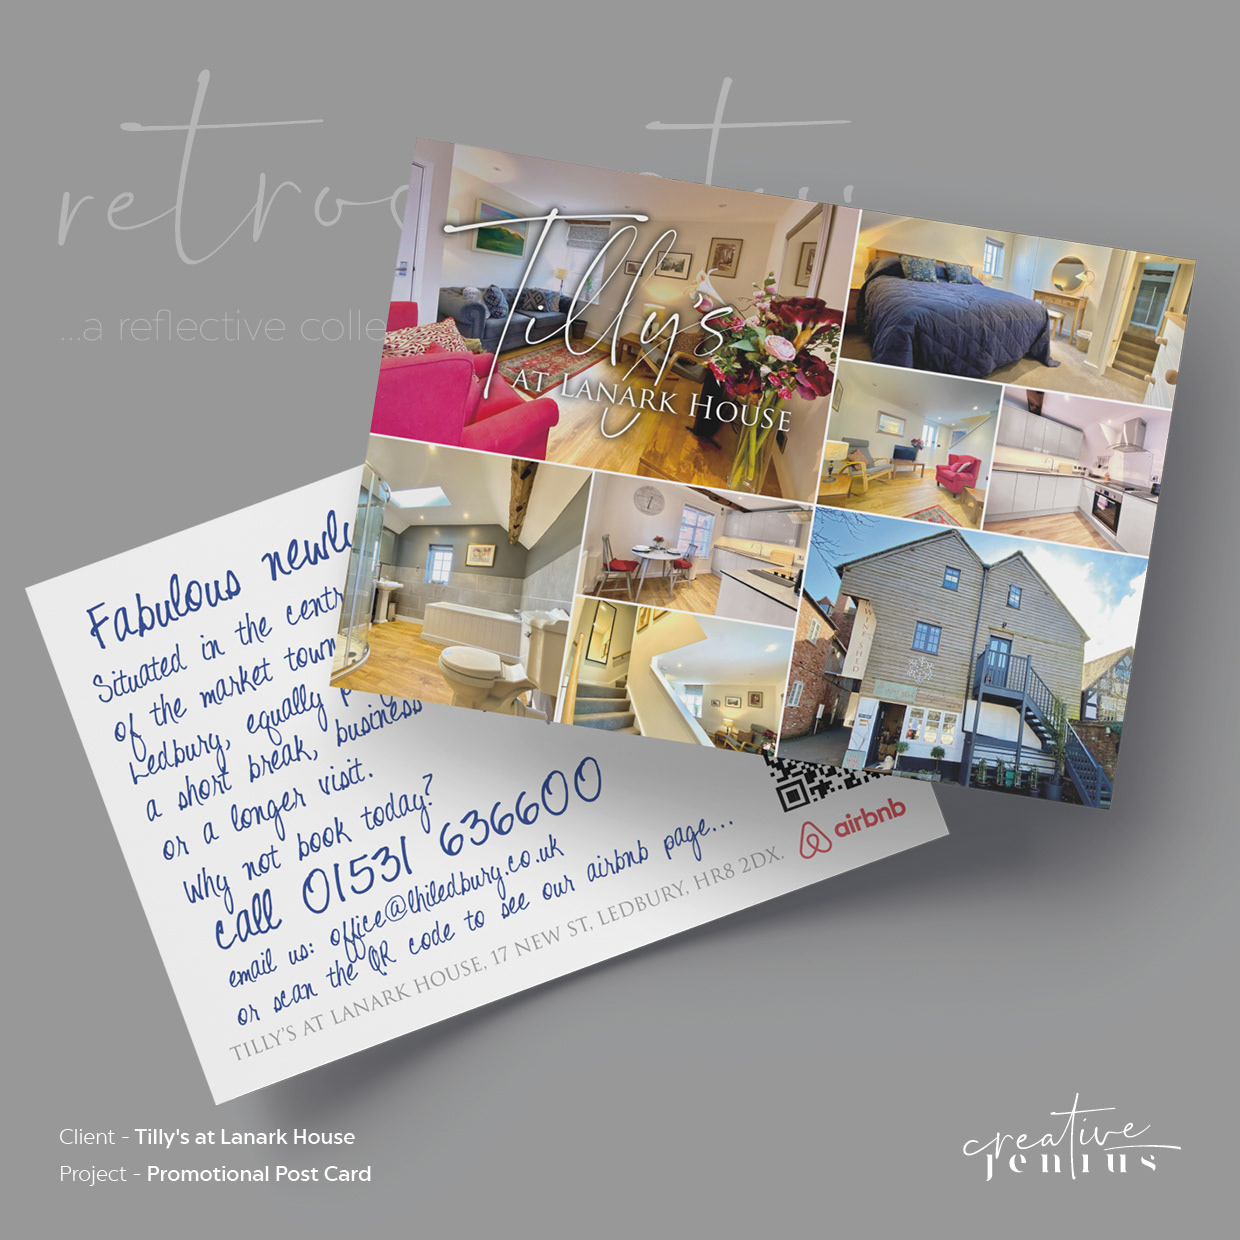 ...a reflective
Tilly's
AT LANARK HOUSE
WINE SHED
Fabulous
Situated in the
of the market town
Ledbury, equally
a short break, business
or a longer visit.
Why not book today?
call 01531 636600
email us: office@lhiledbury.co.uk
or scan the QR code to see our airbnb page...
TILLY'S AT LANARK HOUSE, 17 NEW ST, LEDBURY, HR8 2DX.
airbnb
Client - Tilly's at Lanark House
Project - Promotional Post Card
creative
jenius